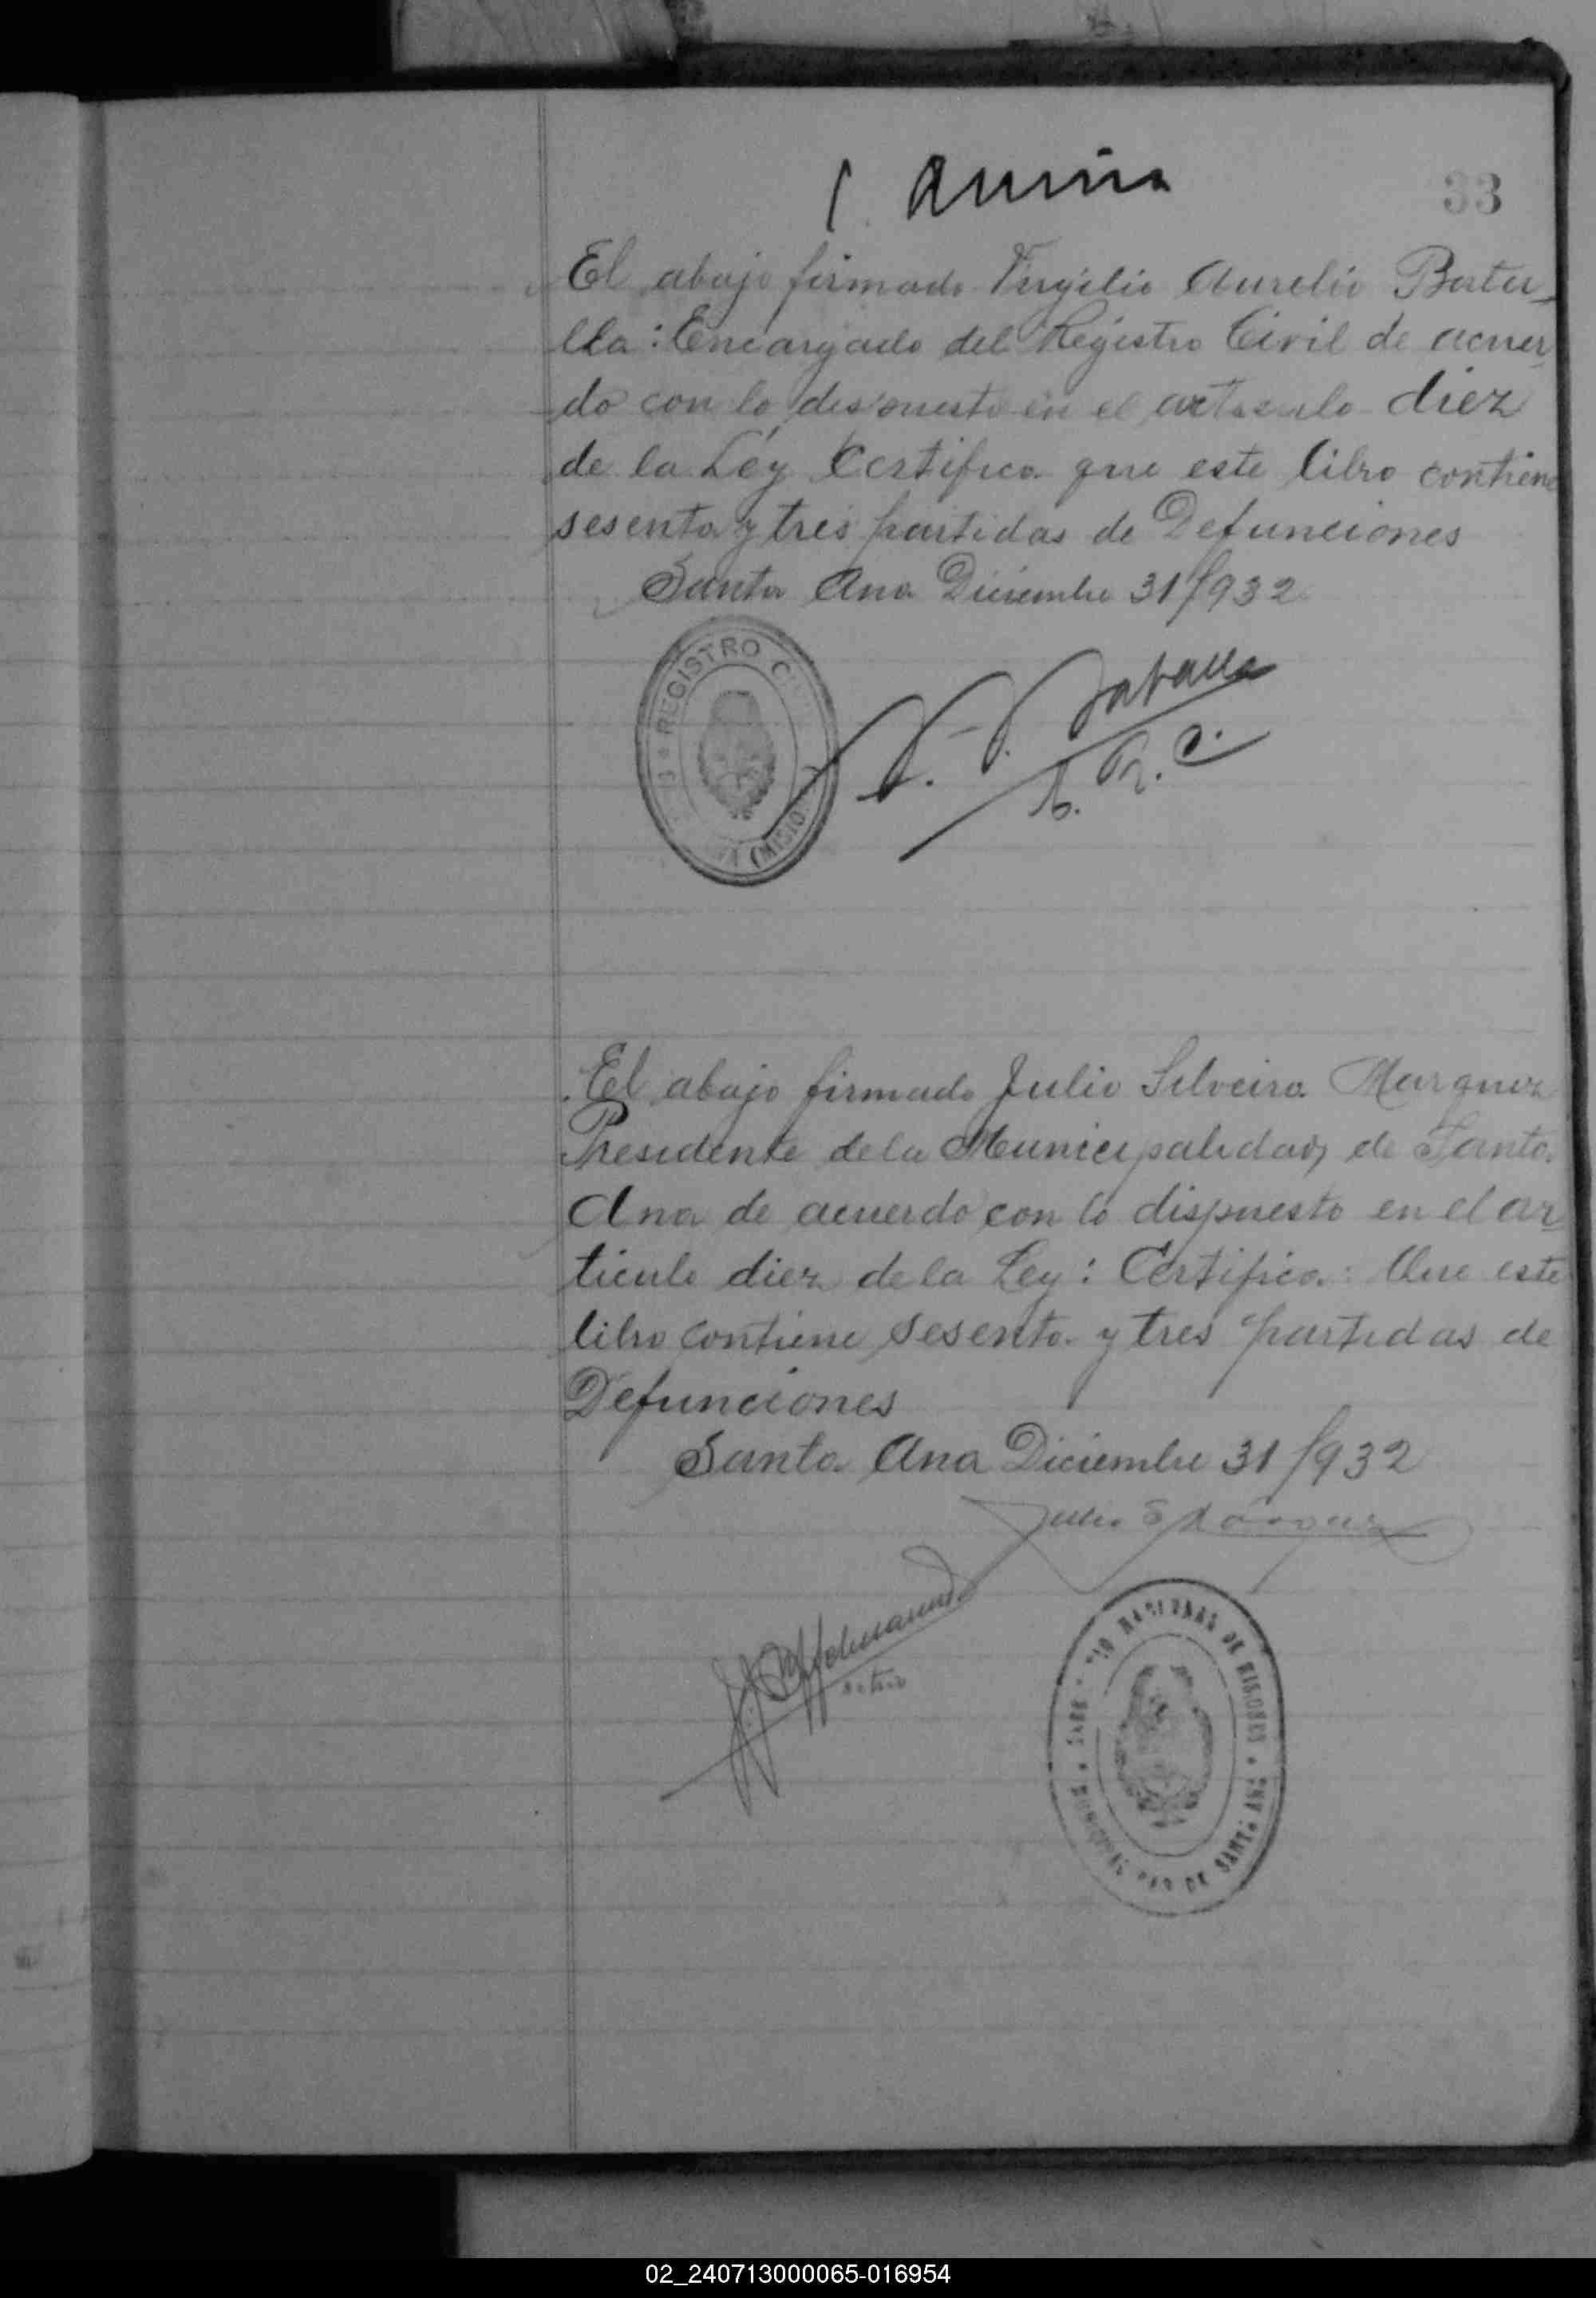 33
El abajo firmado Virgilio Aurelio
lla: Encargado del Registro Civil de acuer
do con lo dispuesto en el artículo diez
de la Ley Certifica que este libro contiene
sesenta y tres partidas de Defunciones
Santa Ana Diciembre 31/932
REGISTRO
(MISIO
El abajo firmado Julio Silveira Marquez
Presidente de la Municipalidad de Santa
Ana de acuerdo con lo dispuesto en el ar
ticulo diez de la Ley: Certifica: Que este
libro contiene sesenta y tres partidas de
Defunciones
Santa Ana Diciembre 31/932
Julio S Marquez
DE MISIONES
DE SANTA ANA
02_240713000065-016954